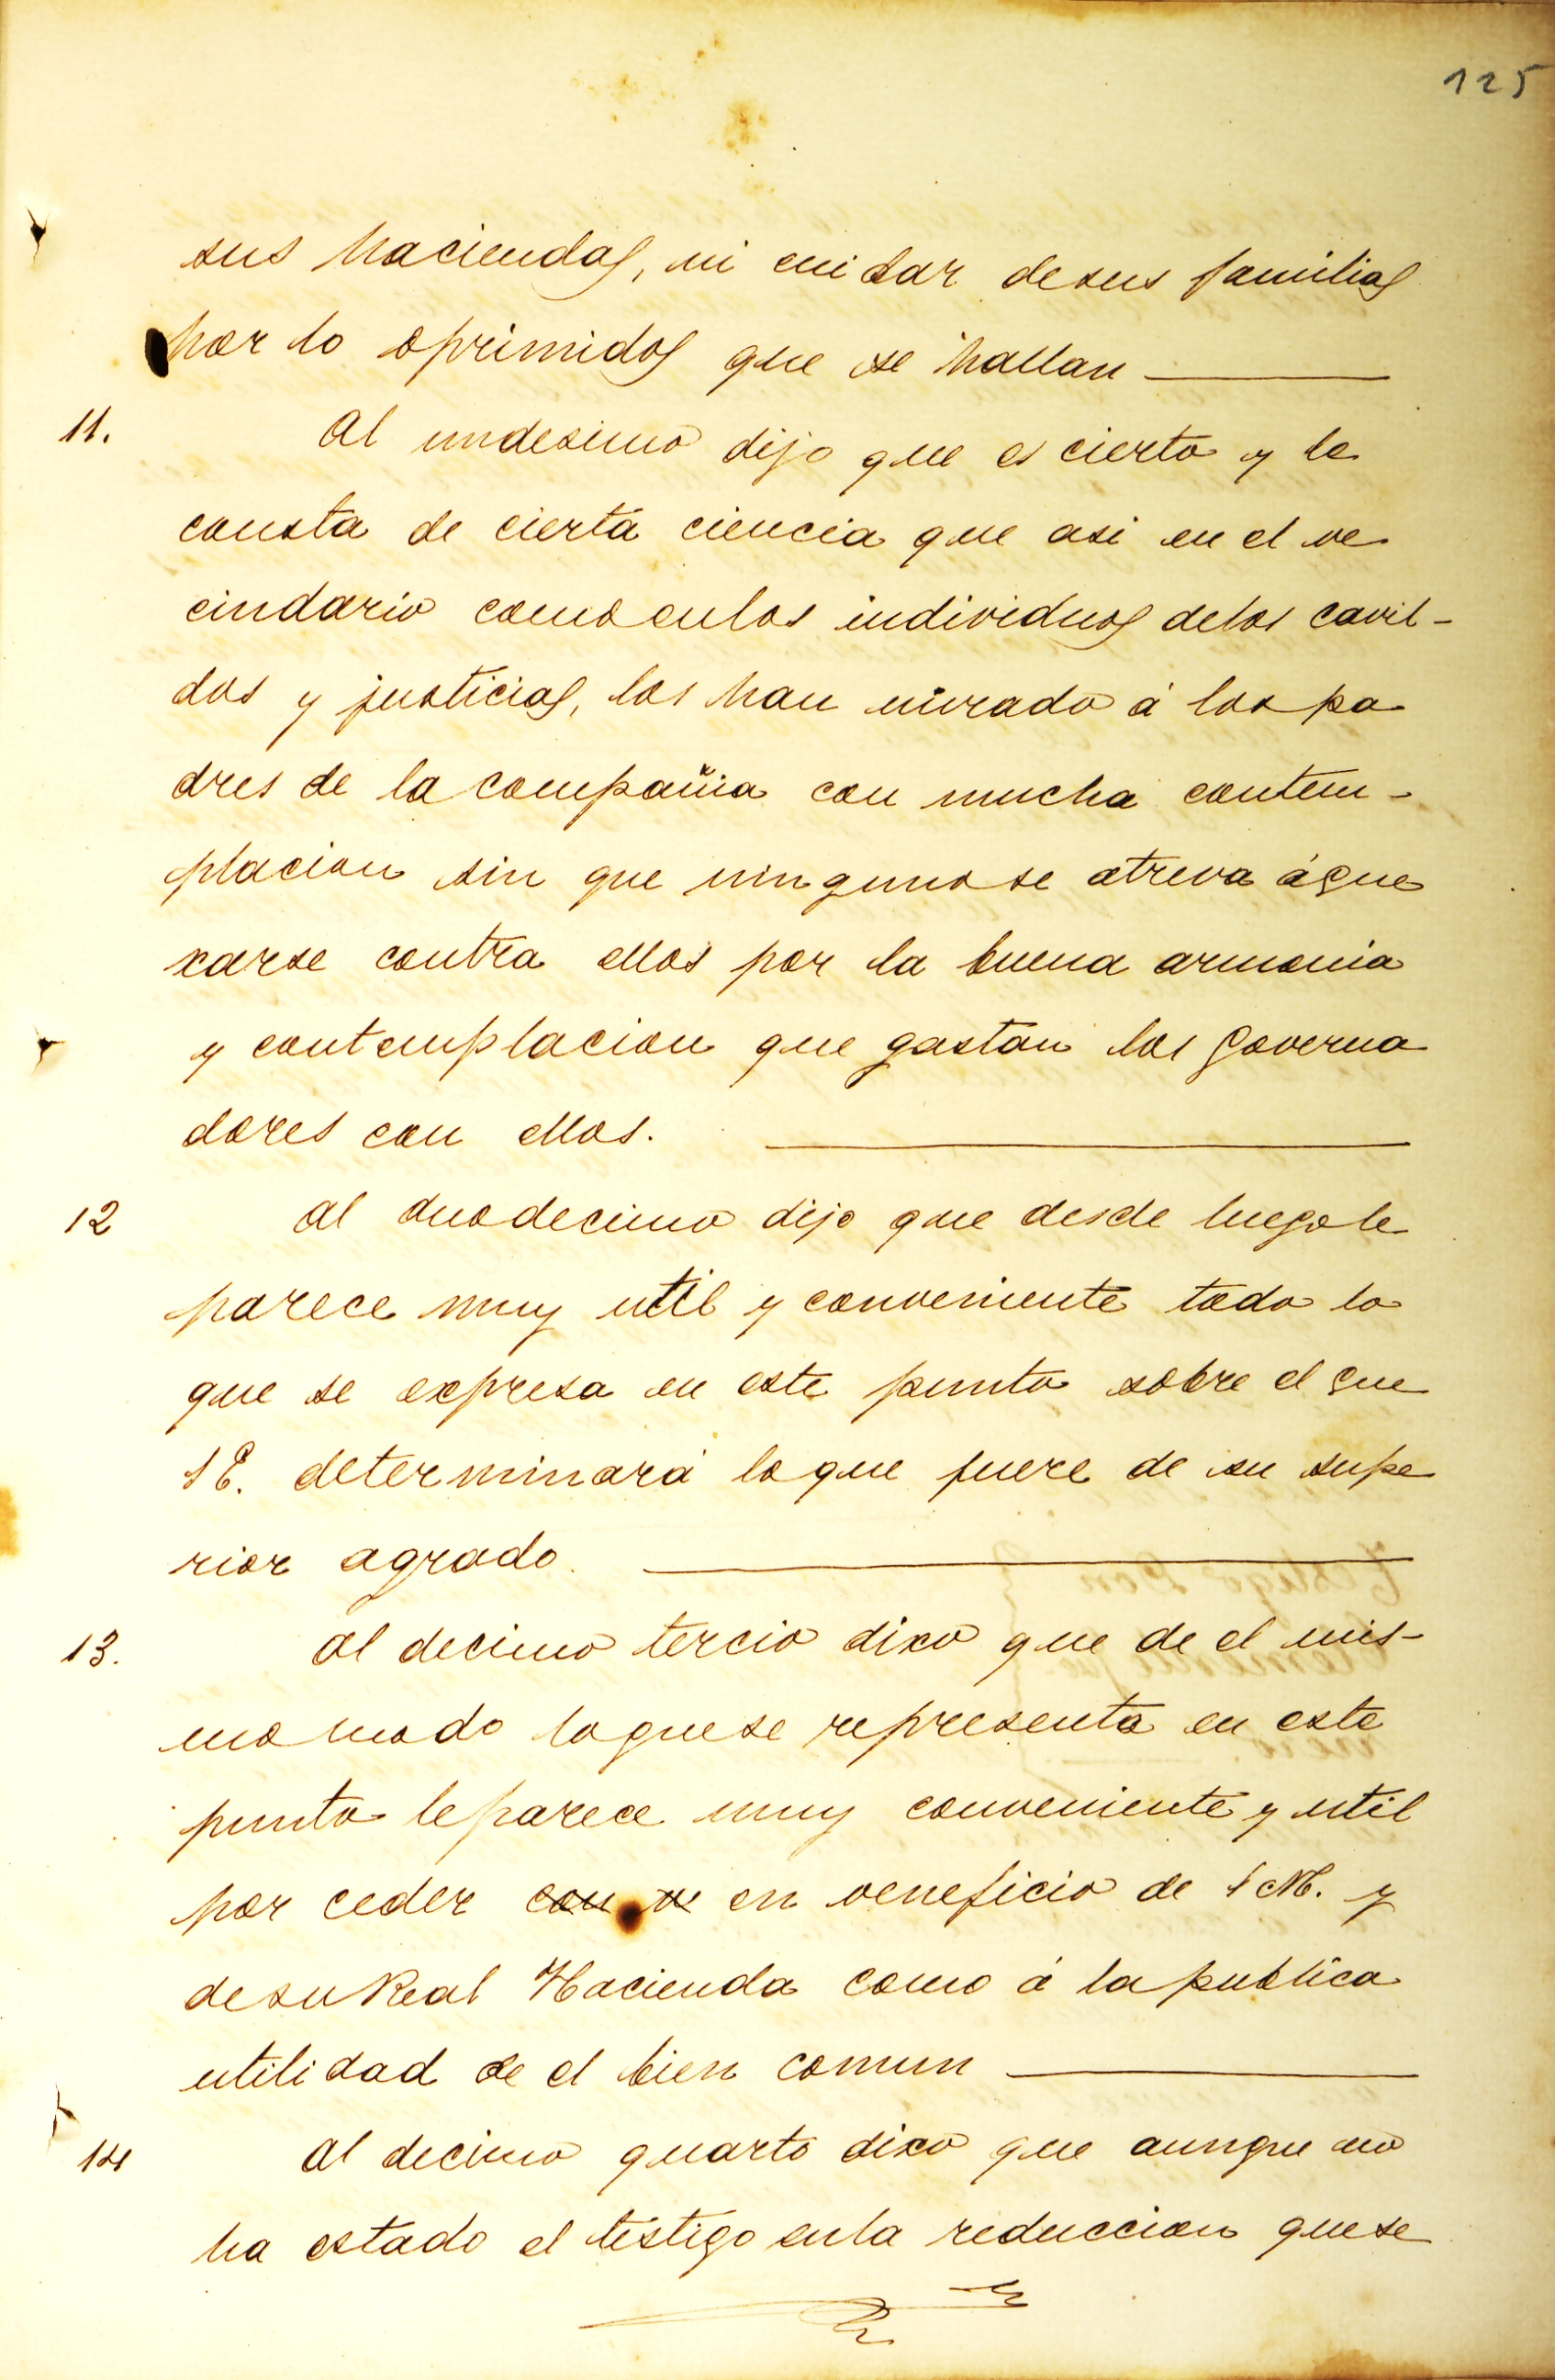 125
sus haciendas, ni cuidar desus familias
por lo oprimidos que se hallan
11. Al undesimo dijo que es cierto y le
consta de cierta ciencia que asi en el ve
cindario como enlos individuos delos cavil-
dos y justicias, los han mirado á los pa
dres de la compañia con mucha contem-
placion sin que ninguno se atreva áque
xarse contra ellos por la buena armonia
y contemplacion que gastan los governa
dores con ellos.
12 Al duodecimo dijo que desde luego le
parece muy util y conveniente todo lo
que se expresa en este punto sobre el que
S E. determinará loque fuere de su supe
rior agrado.
13. Al decimo tercio dixo que de el mis-
mo modo loquese representa en este
punto leparece muy conveniente y util
por ceder con ve en veneficio de S M. y
desu Real Hacienda como á la publica
utilidad de el bien comun
14 Al decimo quarto dixo que aunque no
ha estado el testigo enla reduccion quese